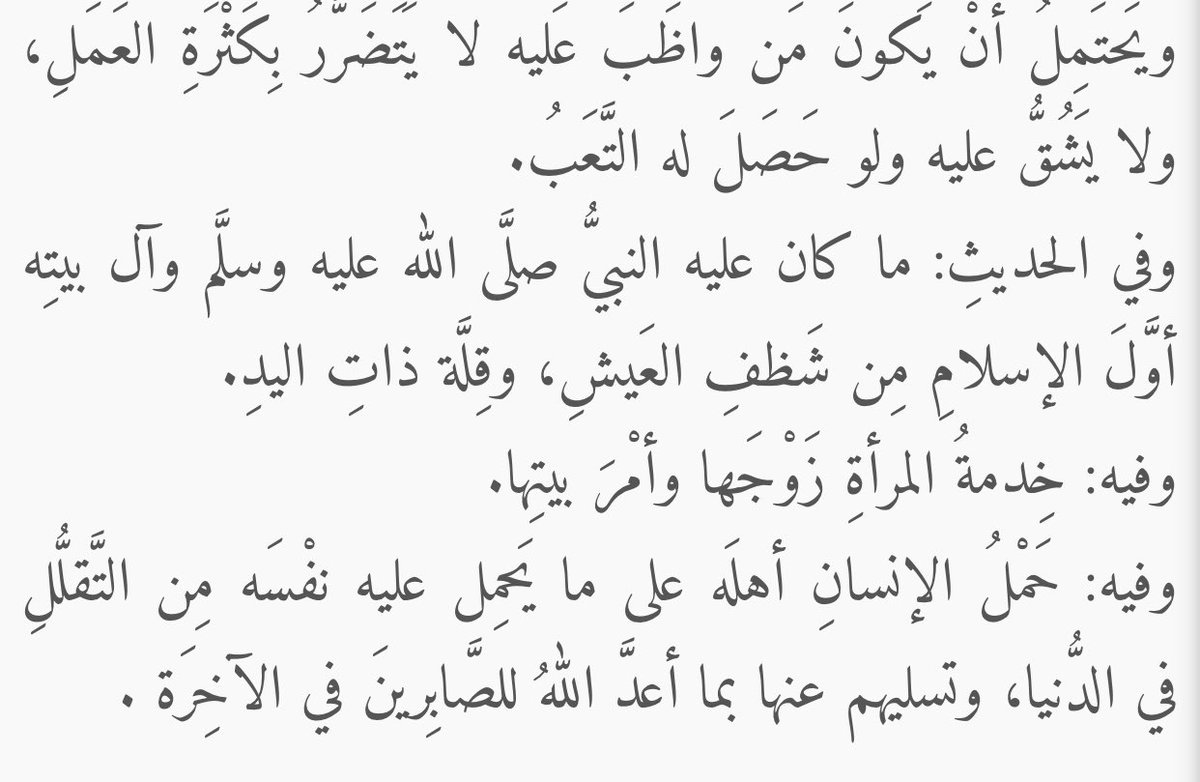 ويَحتَمِلُ أنْ يَكونَ مَن واظَبَ عَليه لا يَتَضَرَّرُ بِكَثْرَةِ العَمَلِ،
ولا يَشُقُّ عليه ولو حَصَلَ له التَّعَبُ.
وفي الحديثِ: ما كان عليه النبيُّ صلَّى الله عليه وسلَّم وآل بيتِه
أوَّلَ الإسلامِ مِن شَظفِ العَيشِ، وقِلَّة ذاتِ اليدِ.
وفيه: خِدمةُ المرأةِ زَوْجَها وأمْرَ بيتِها.
وفيه: حَمْلُ الإنسانِ أهلَه على ما يَحمِل عليه نفْسَه مِن التَّقلُّلِ
في الدُّنيا، وتسليهم عنها بما أعدَّ اللهُ للصَّابِرينَ في الآخِرَة .